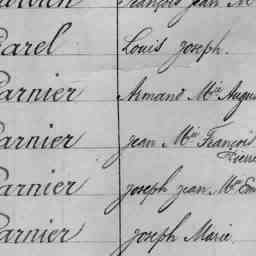 François Jean M
Garel Louis Joseph.
Garnier Armand Mie Augu
Garnier Jean Mie François
Pierre
Garnier Joseph Jean Mie Em
Garnier Joseph Marie